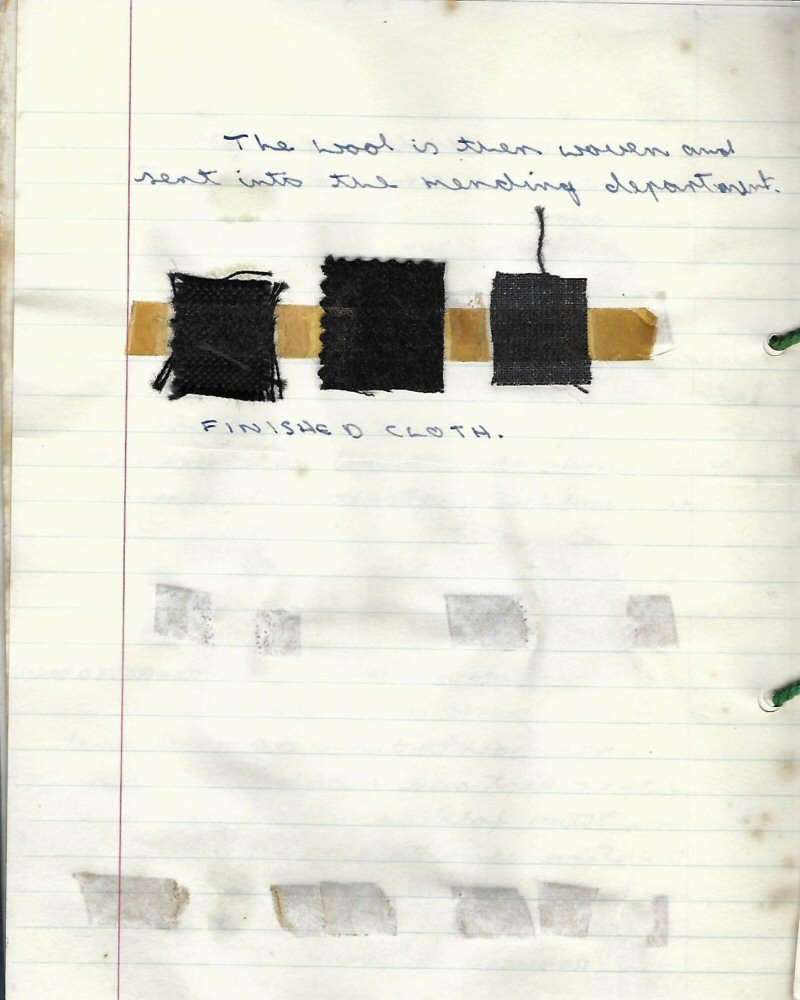 The wool is then woven and
sent into the mending department.
FINISHED CLOTH.